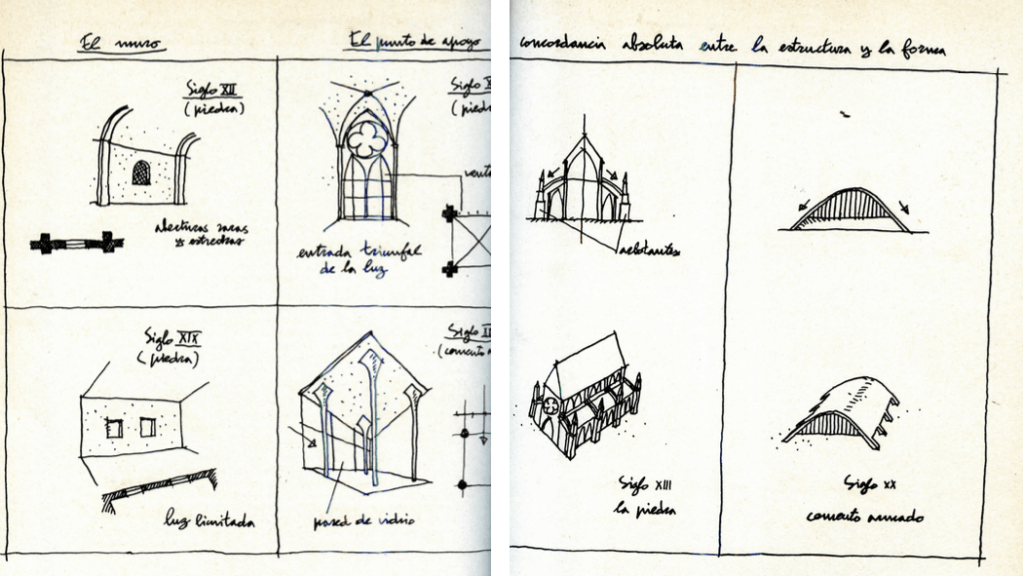 El muro
El punto de apoyo
concordancia absoluta entre la estructura y la forma
Siglo XII
(piedra)
aberturas raras
y estrechas
Siglo X
(piedra
venta
entrada triunfal
de la luz
arbotantes
Siglo XIX
(piedra)
luz limitada
Siglo
(cemento a
pared de vidrio
Siglo XIII
la piedra
Siglo XX
cemento armado